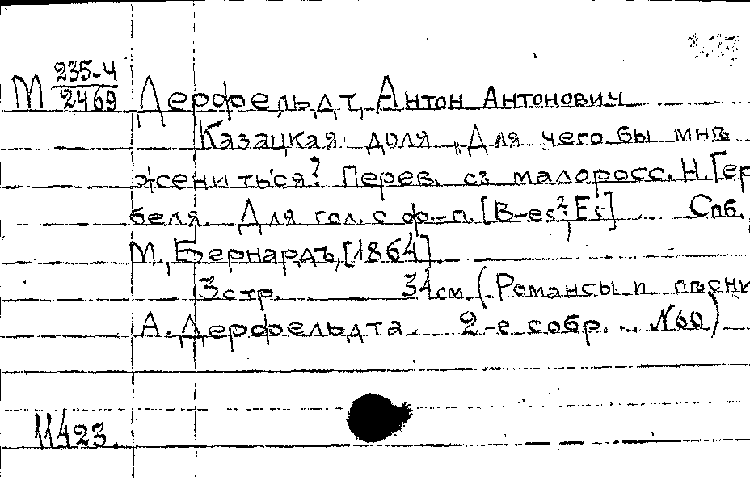 М 235-4
2469
Дерфельдт, Антон Антонович
Казацкая доля „Для чего бы мнѣ
жениться? Перев. съ малоросс. Н. Гер
беля. Для гол. с ф.-п. [B-es², Es] Спб.,
М., Бернардъ, [1864]
3 стр. 34 см. (Романсы и пѣсни
А. Дерфельдта. 2-е собр. .. № 60)
11423.